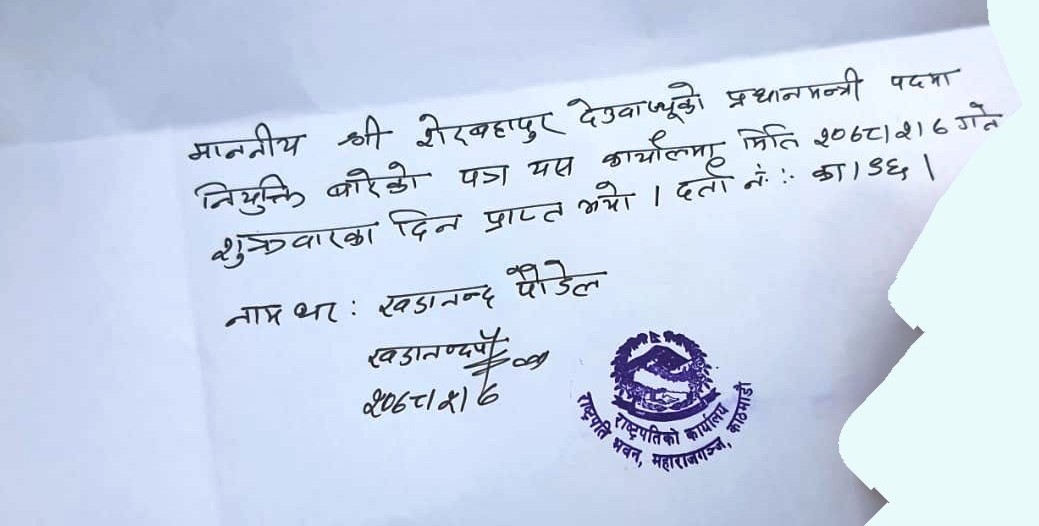 माननीय श्री शेरबहादुर देउवाज्यूको प्रधानमन्त्री पदमा
नियुक्ति बारेको पत्र यस कार्यालमा मिति २०७८।२।७ गते
शुक्रवारका दिन प्राप्त भयो । दर्ता नं. : का। ३६ ।
नाम थर : खडानन्द पौडेल
२०७८।२।७
राष्ट्रपतिको कार्यालय
राष्ट्रपति भवन, महाराजगञ्ज, काठमाडौं